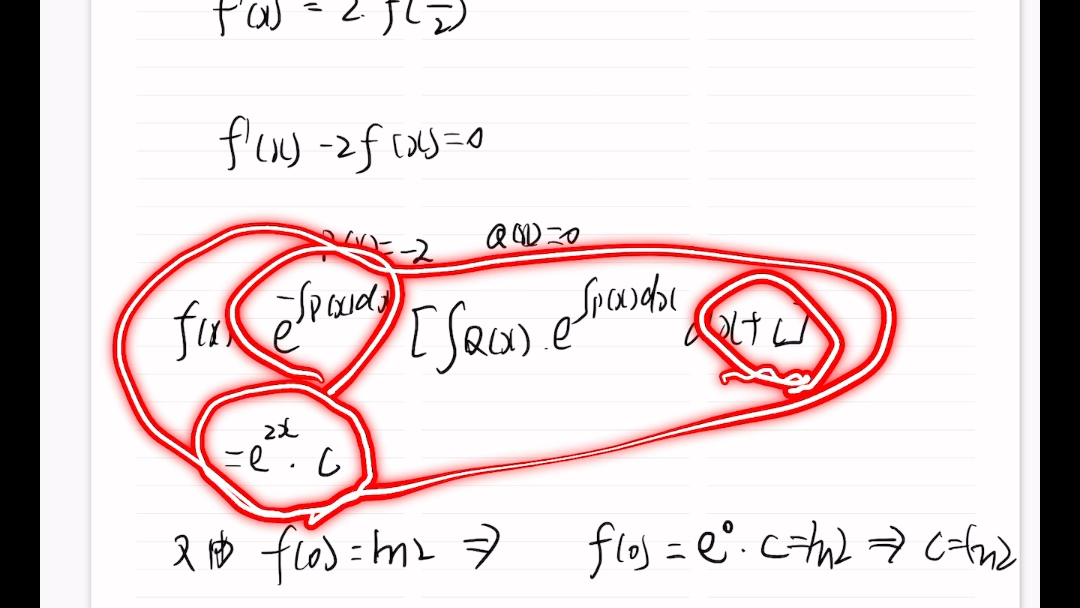 f'(x) = 2·f(x/2)
f'(x) -2f(x)=0
P(x)=-2 Q(x)=0
f(x) e^{-∫p(x)dx} [∫Q(x)·e^{∫p(x)dx} dx+c]
=e^{2x}·c
又由 f(0)=ln2 ⇒ f(0)=e^0·c=ln2 ⇒ c=ln2